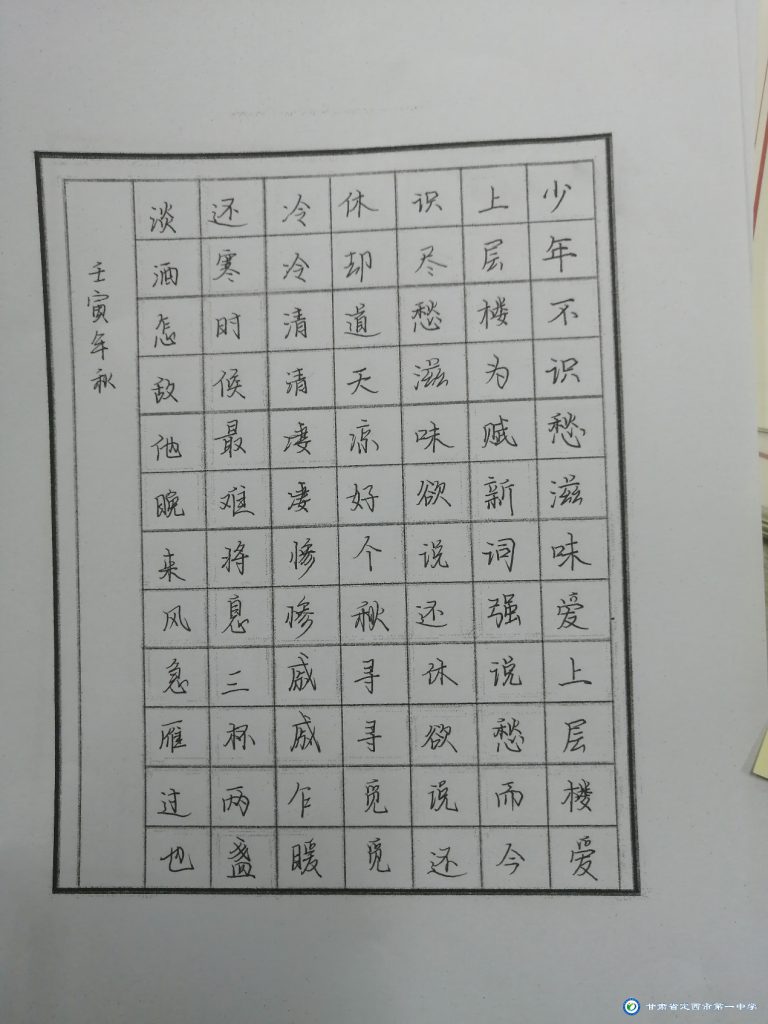 少年不识愁滋味爱上层楼爱
上层楼为赋新词强说愁而今
识尽愁滋味欲说还休欲说还
休却道天凉好个秋寻寻觅觅
冷冷清清凄凄惨惨戚戚乍暖
还寒时候最难将息三杯两盏
淡酒怎敌他晚来风急雁过也
壬寅年秋
甘肃省定西市第一中学